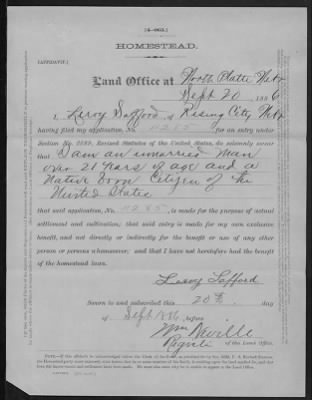 [4—063.]
HOMESTEAD.
(AFFIDAVIT.)
Land Office at North Platte Neb
Sept 20, 1886
I, Leroy Safford, of Rising City Neb
having filed my application, No. for an entry under
Section No. 2289, Revised Statutes of the United States, do solemnly swear
that I am an unmarried man
over 21 years of age and a
Native Born Citizen of the
United States
that said application, No. is made for the purpose of actual
settlement and cultivation; that said entry is made for my own exclusive
benefit, and not directly or indirectly for the benefit or use of any other
person or persons whomsoever; and that I have not heretofore had the benefit
of the homestead laws.
Leroy Safford
Sworn to and subscribed this 20th day
of Sept 1886, before
Wm Neville
Register of the Land Office.